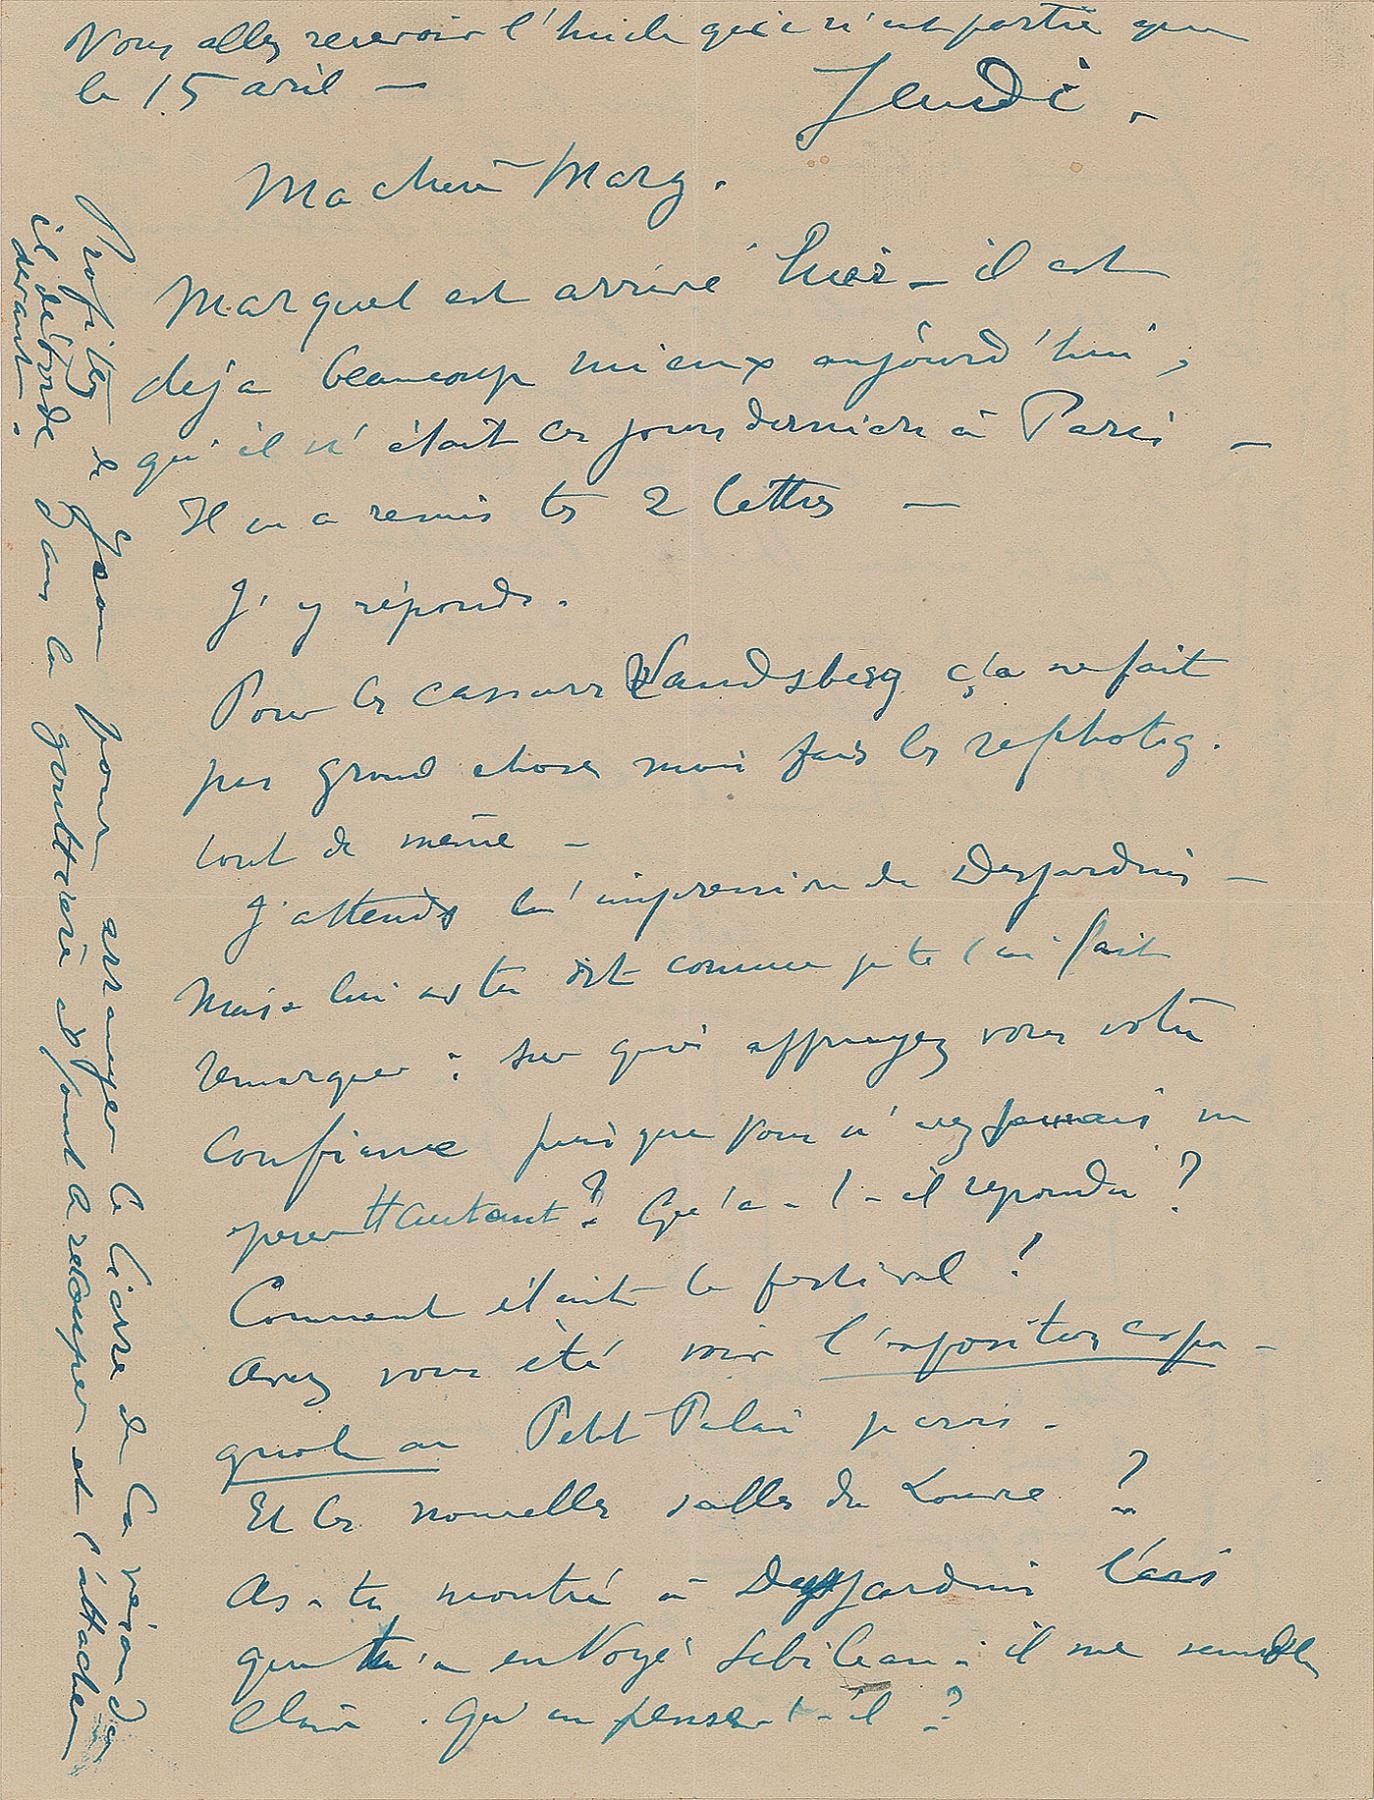 Vous allez recevoir l'huile qui n'est partie que
le 15 avril —
Jeudi.
Ma chère Marg.
Marquet est arrivé hier — il est
déja beaucoup mieux aujourd'hui,
qu'il n'était ces jours derniers à Paris —
Il m'a remis tes 2 lettres —
J'y réponds.
Pour les Landsberg ça ne fait
pas grand chose mais fais les rephotog.
tout de même —
J'attends l'impression de Desjardins —
Mais lui as tu dit comme je te l'ai fait
remarquer : sur quoi appuyez vous votre
confiance puisque vous n'avez jamais vu
Qu'a-t-il répondu ?
Comment était le festival ?
avez vous été voir l'exposition espa-
gnole au Petit Palais
Et les nouvelles salles du Louvre ?
As-tu montré à Desjardins l'avis
que t'a envoyé Sebileau : il me semble
clair. Qu'en pense-t-il ?
Profitez de Jean pour arranger le lierre de la véranda,
il déborde dans la gouttière et faut le recouper et l'attacher
devant.